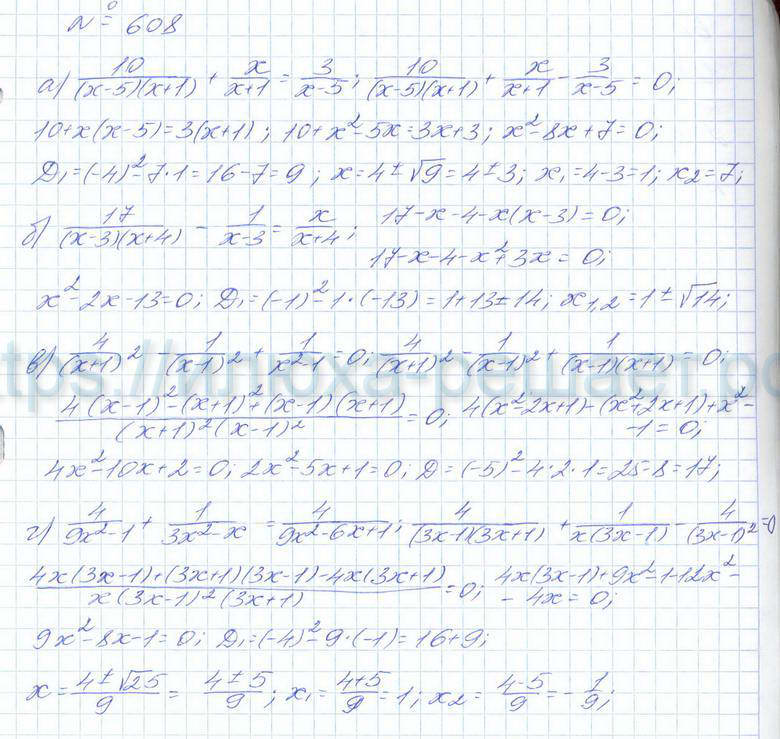 № 608
а) 10/((x-5)(x+1)) + x/(x+1) = 3/(x-5); 10/((x-5)(x+1)) + x/(x+1) - 3/(x-5) = 0;
10+x(x-5)=3(x+1); 10+x²-5x=3x+3; x²-8x+7=0;
D₁=(-4)²-7·1=16-7=9; x=4±√9=4±3; x₁=4-3=1; x₂=7;
б) 17/((x-3)(x+4)) - 1/(x-3) = x/(x+4); 17-x-4-x(x-3)=0;
17-x-4-x²+3x=0;
x²-2x-13=0; D₁=(-1)²-1·(-13)=1+13±14; x₁,₂=1±√14;
https://илюха-решает.рф
в) 4/(x+1)² - 1/(x-1)² + 1/(x²-1) = 0; 4/(x+1)² - 1/(x-1)² + 1/((x-1)(x+1)) = 0;
(4(x-1)²-(x+1)²+(x-1)(x+1))/((x+1)²(x-1)²) = 0; 4(x²-2x+1)-(x²+2x+1)+x²-
-1=0;
4x²-10x+2=0; 2x²-5x+1=0; D=(-5)²-4·2·1=25-8=17;
г) 4/(9x²-1) + 1/(3x²-x) = 4/(9x²-6x+1); 4/((3x-1)(3x+1)) + 1/(x(3x-1)) - 4/(3x-1)² = 0
(4x(3x-1)+(3x+1)(3x-1)-4x(3x+1))/(x(3x-1)²(3x+1)) = 0; 4x(3x-1)+9x²-1-12x²-
-4x=0;
9x²-8x-1=0; D₁=(-4)²-9·(-1)=16+9;
x = (4±√25)/9 = (4±5)/9; x₁ = (4+5)/9 = 1; x₂ = (4-5)/9 = -1/9;